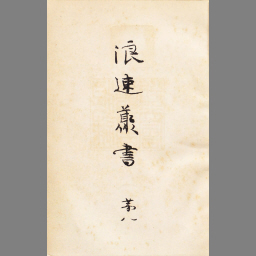 浪速叢書 第八